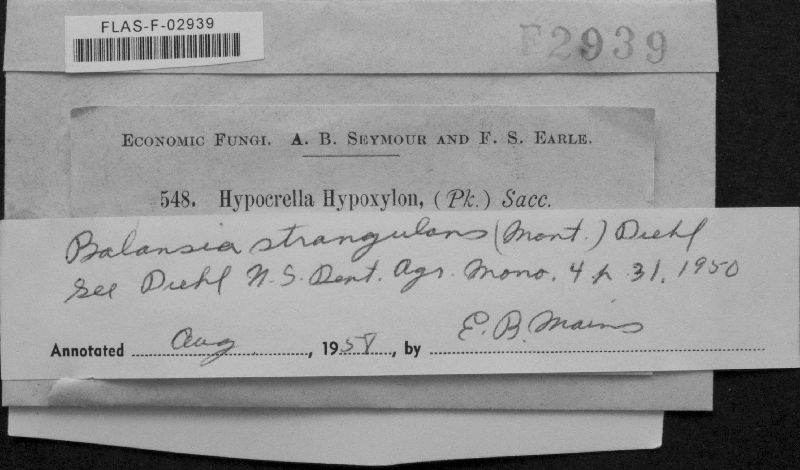 FLAS-F-02939
F2939
ECONOMIC FUNGI. A. B. SEYMOUR AND F. S. EARLE.
548. Hypocrella Hypoxylon, (Pk.) Sacc.
Balansia strangulans (Mont.) Diehl
See Diehl U.S. Dept. Agr. Mono. 4 p 31, 1950
Annotated Aug , 195 , by E. B. Mains